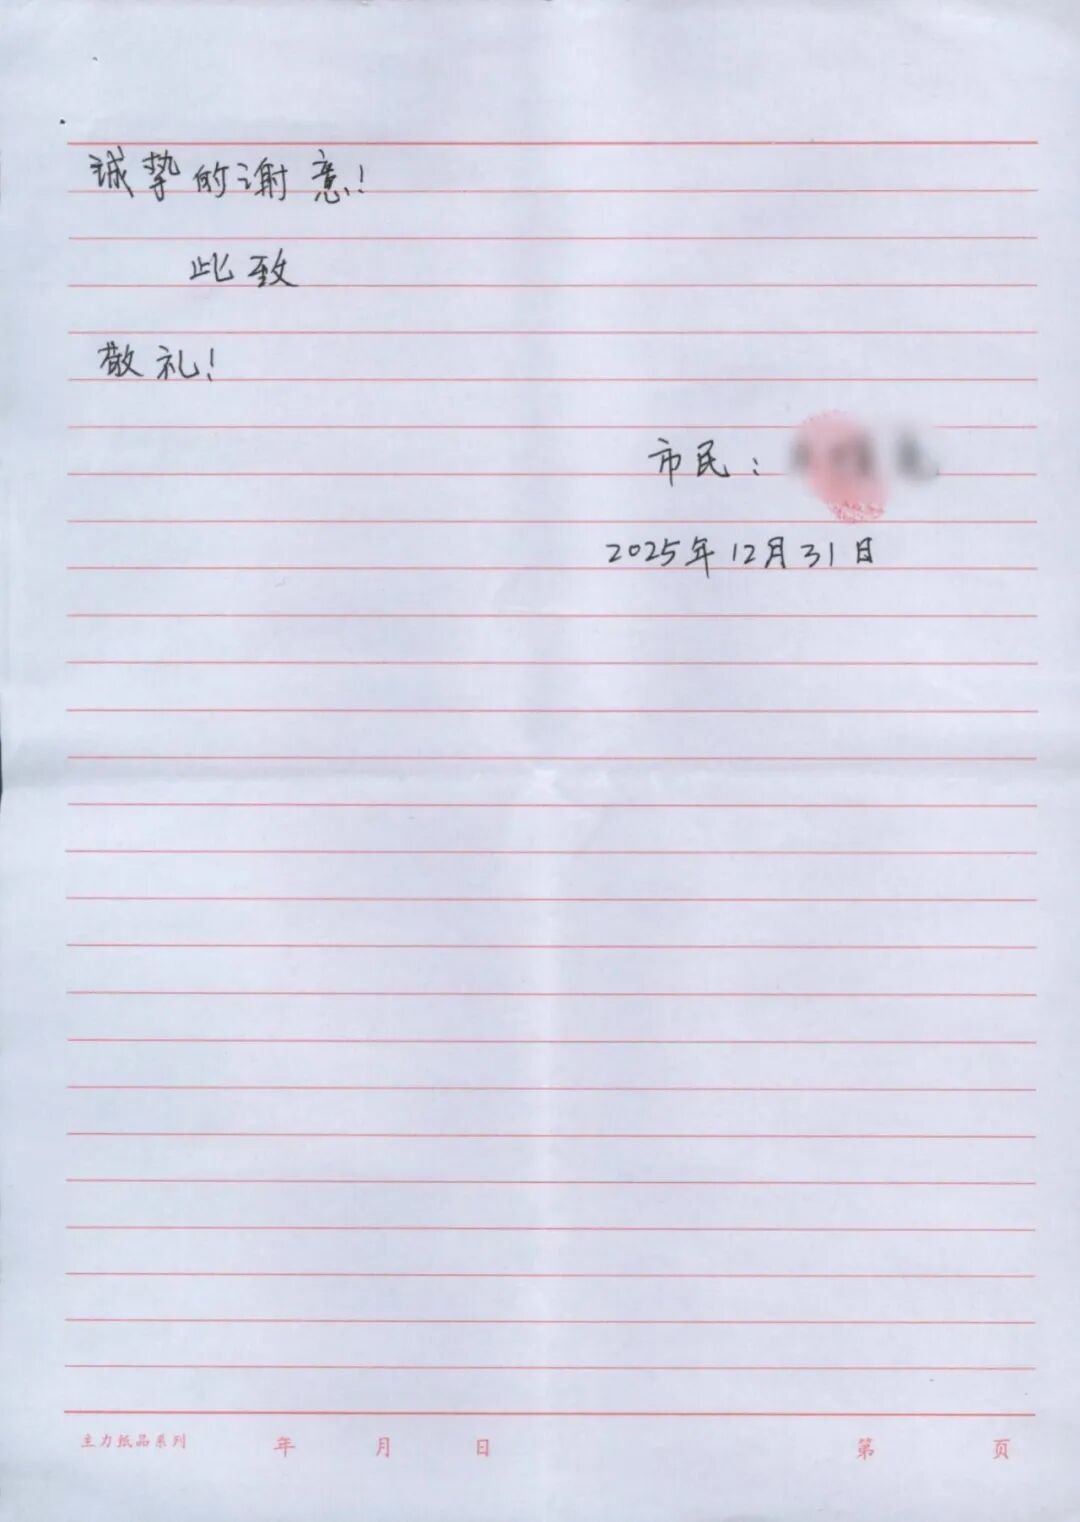 诚挚的谢意!
此致
敬礼!
市民:
2025年12月31日
主力纸品系列 年 月 日 第 页